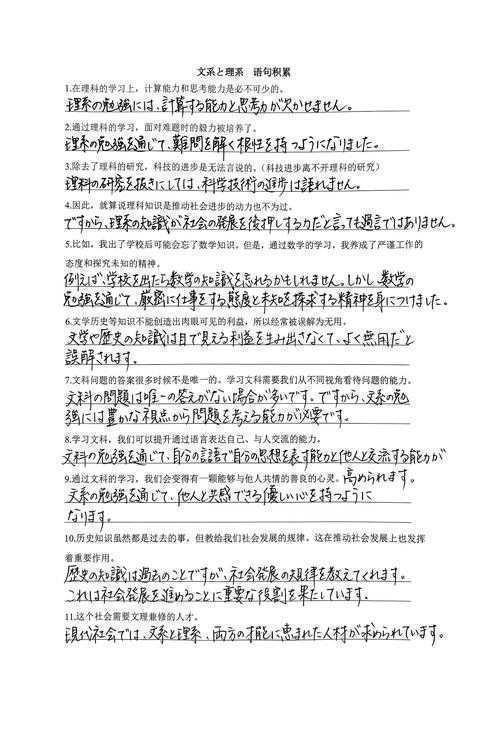 文系と理系　语句积累
1.在理科的学习上，计算能力和思考能力是必不可少的。
理系の勉強には、計算する能力と思考力が欠かせません。
2.通过理科的学习，面对难题时的毅力被培养了。
理系の勉強を通じて、難問を解く根性を持つようになりました。
3.除去了理科的研究，科技的进步是无法言说的。（科技进步离不开理科的研究）
理科の研究を抜きにしては、科学技術の進歩は語れません。
4.因此，就算说理科知识是推动社会进步的动力也不为过。
ですから、理系の知識が社会の発展を後押しする力だと言っても過言ではありません。
5.比如，我出了学校后可能会忘了数学知识。但是，通过数学的学习，我养成了严谨工作的
态度和探究未知的精神。
例えば、学校を出たら数学の知識を忘れるかもしれません。しかし、数学の
勉強を通じて、厳密に仕事をする態度と未知を探求する精神を身につけました。
6.文学历史等知识不能创造出肉眼可见的利益，所以经常被误解为无用。
文学や歴史の知識は目で見える利益を生み出さなくて、よく無用だと
誤解されます。
7.文科问题的答案很多时候不是唯一的。学习文科需要我们从不同视角看待问题的能力。
文科の問題は唯一の答えがない場合が多いです。ですから、文系の勉
強には豊かな視点から問題を考える能力が必要です。
8.学习文科，我们可以提升通过语言表达自己、与人交流的能力。
文科の勉強を通じて、自分の言語で自分の思想を表す能力と他人と交流する能力が
高められます。
9.通过文科的学习，我们会变得有一颗能够与他人共情的善良的心灵。
文系の勉強を通じて、他人と共感できる優しい心を持つように
なります。
10.历史知识虽然都是过去的事，但教给我们社会发展的规律。这在推动社会发展上也发挥
着重要作用。
歴史の知識は過去のことですが、社会発展の規律を教えてくれます。
これは社会発展を進めることに重要な役割を果たしています。
11.这个社会需要文理兼修的人才。
現代社会では、文系と理系、両方の才能に恵まれた人材が求められています。